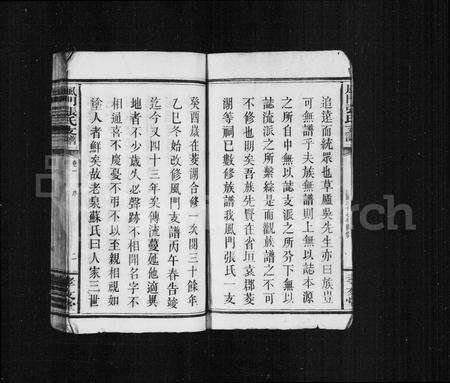 追遠而統眾也草廬吳先生亦曰族豈
可無譜乎夫族無譜則上無以誌本源
之所自中無以誌支派之所分下無以
誌流派之所繫綜是而觀族譜之不可
不修也明矣吾族先賢在省垣袁郡菱
湖等祠已數修族譜我風門張氏一支
癸酉歲在菱湖合修一次閱三十餘年
乙巳冬始改修風門支譜丙午春告竣
迄今又四十三年矣傳流蔓延他適異
地者不少歲久必聲跡不相聞名字不
相通喜不慶憂不弔不以至親相視如
塗人者鮮矣故老泉蘇氏曰人家三世
風門張氏支譜
卷一
序
二